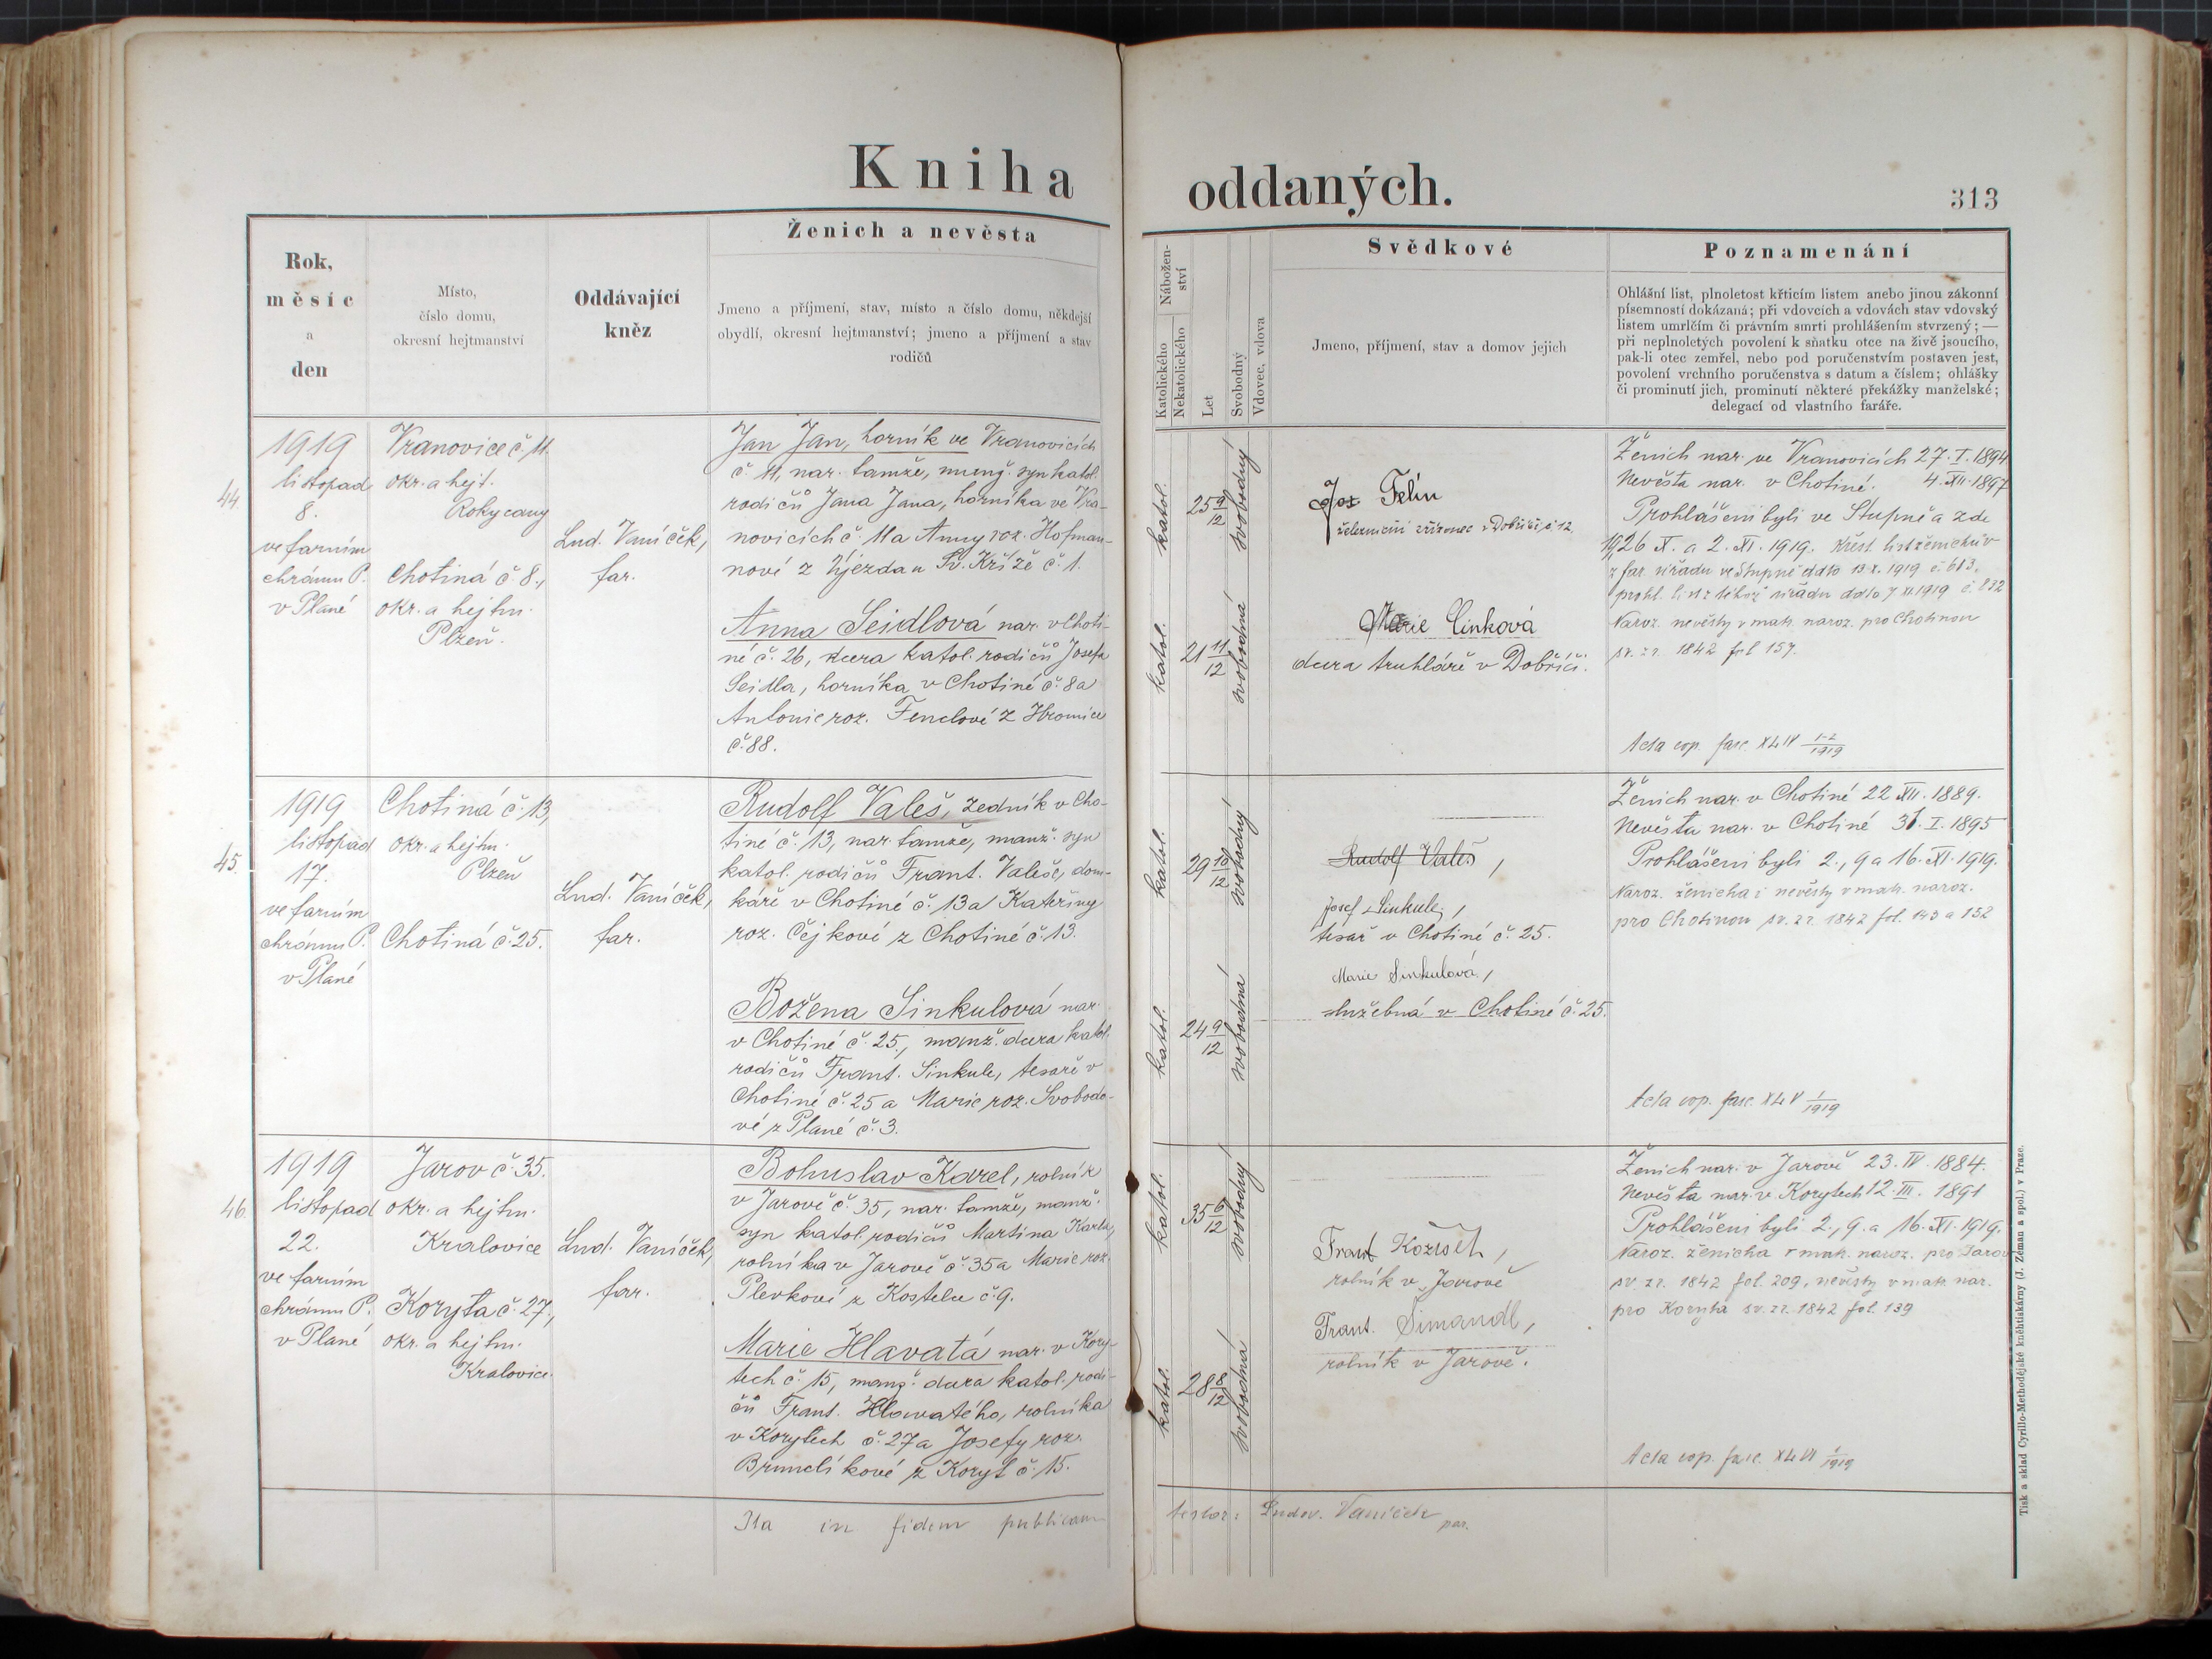 Kniha oddaných.
313
Rok,
měsíc
a
den
Místo,
číslo domu,
okresní hejtmanství
Oddávající
kněz
Ženich a nevěsta
Jmeno a příjmení, stav, místo a číslo domu, někdejší
obydlí, okresní hejtmanství; jmeno a příjmení a stav
rodičů
Nábožen-
ství
Katolického
Nekatolického
Let
Svobodný
Vdovec, vdova
Svědkové
Jmeno, příjmení, stav a domov jejich
Poznamenání
Ohlášní list, plnoletost křticím listem anebo jinou zákonní
písemností dokázaná; při vdovcích a vdovách stav vdovský
listem umrlčím či právním smrti prohlášením stvrzený; —
při neplnoletých povolení k sňatku otce na živě jsoucího,
pak-li otec zemřel, nebo pod poručenstvím postaven jest,
povolení vrchního poručenstva s datum a číslem; ohlášky
či prominutí jich, prominutí některé překážky manželské;
delegací od vlastního faráře.
44.
1919
listopad
8.
ve farním
chrámu P.
v Plané
Vranovice č. 11.
okr. a hejt.
Rokycany
Chotiná č. 8.,
okr. a hejtm.
Plzeň.
Lud. Vaníček,
far.
Jan Jan, horník ve Vranovicích
č. 11, nar. tamže, manž. syn katol.
rodičů Jana Jana, horníka ve Vra-
novicích č. 11 a Anny roz. Hofman-
nové z Újezda u Sv. Kříže č. 1.
Anna Seidlová nar. v Choti-
né č. 26, dcera katol. rodičů Josefa
Seidla, horníka v Chotiné č. 8 a
Antonie roz. Fenclové z Hromice
č. 88.
katol.
25 9/12
svobodný
katol.
21 11/12
svobodná
Jos Felín
železniční zřízenec v Dobříči č 12,
Marie Cinková
dcera truhláře v Dobříči.
Ženich nar. ve Vranovicích 27. I. 1894
Nevěsta nar. v Chotiné. 4. XII. 1897
Prohlášeni byli ve Stupně a zde
19, 26 X. a 2. XI. 1919. Křest. list ženichův
z far. úřadu ve Stupně ddto 13. X. 1919 č. 613.
prohl. list z téhož úřadu ddto 7 XI 1919 č. 832
Naroz. nevěsty v matr. naroz. pro Chotinou
sv. zr. 1842 fol 157.
Acta cop. fasc. XLIV 1-2/1919
45.
1919
listopad
17.
ve farním
chrámu P.
v Plané
Chotiná č. 13,
okr. a hejtm.
Plzeň
Chotiná č. 25.
Lud. Vaníček,
far.
Rudolf Valeš, zedník v Cho-
tiné č. 13, nar. tamže, manž. syn
katol. rodičů Frant. Valeše, dom-
káře v Chotiné č. 13 a Kateřiny
roz. Čejkové z Chotiné č. 13.
Božena Sinkulová nar.
v Chotiné č. 25., manž. dcera katol.
rodičů Frant. Sinkule, tesaře v
Chotiné č. 25 a Marie roz. Svobodo-
vé z Plané č. 3.
katol.
29 10/12
svobodný
katol.
24 9/12
svobodná
Rudolf Valeš,
Josef Sinkule,
tesař v Chotiné č. 25.
Marie Sinkulová,
služebná v Chotiné č. 25.
Ženich nar. v Chotiné 22 XII. 1889.
Nevěsta nar. v Chotiné 31. I. 1895
Prohlášeni byli 2., 9 a 16. XI. 1919.
Naroz. ženicha i nevěsty v matr. naroz.
pro Chotinou sv. zr. 1842 fol. 143 a 152
Acta cop. fasc. XLV 1/1919
46.
1919
listopad
22.
ve farním
chrámu P.
v Plané
Jarov č. 35.
okr. a hejtm.
Kralovice
Koryta č. 27,
okr. a hejtm.
Kralovice.
Lud. Vaníček,
far.
Bohuslav Karel, rolník
v Jarově č. 35, nar. tamže, manž.
syn katol. rodičů Martina Karla,
rolníka v Jarově č. 35 a Marie roz.
Plevkové z Kostelce č. 9.
Marie Hlavatá nar. v Kory-
tech č. 15, manž. dcera katol. rodi-
čů Frant. Hlavatého, rolníka
v Korytech č. 27 a Josefy roz.
Brunclíkové z Koryt č. 15.
katol.
35 6/12
svobodný
katol.
28 8/12
svobodná
Frant
rolník v Jarově
Frant. Šimandl,
rolník v Jarově.
Ženich nar. v Jarově 23. IV. 1884.
Nevěsta nar. v Korytech 12. III. 1891
Prohlášeni byli 2., 9. a 16. XI. 1919.
Naroz. ženicha v matr. naroz. pro Jarov
sv. zr. 1842 fol. 209, nevěsty v matr. nar.
pro Koryta sv. zr. 1842 fol. 139
Acta cop. fasc. XLVI 1/1919
Ita in fidem publicam
testor: Ludov. Vaníček
par.
Tisk a sklad Cyrillo-Methodějské knihtiskárny (J. Zeman a spol.) v Praze.